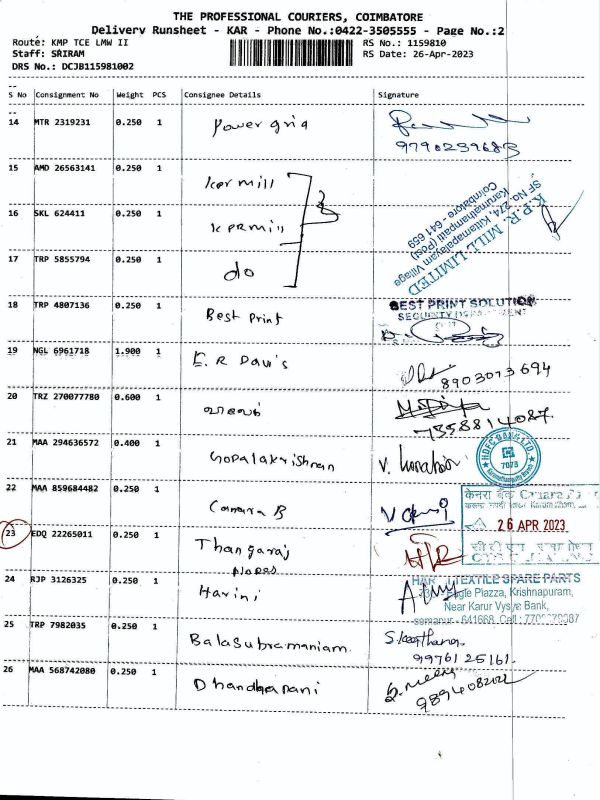 THE PROFESSIONAL COURIERS, COIMBATORE
Delivery Runsheet - KAR - Phone No.:0422-3505555 - Page No.:2
Route: KMP TCE LMW II
RS No.: 1159810
Staff: SRIRAM
RS Date: 26-Apr-2023
DRS No.: DCJB115981002
S No Consignment No Weight PCS Consignee Details Signature
14 MTR 2319231 0.250 1 Power grid
9790239683
15 AMD 26563141 0.250 1 kpr mill
16 SKL 624411 0.250 1 KPRMill
K.P.R. MILL LIMITED
SF No. 274, Kittampalayam Village
Karumathampatti (Post)
Coimbatore - 641 659
17 TRP 5855794 0.250 1 do
18 TRP 4807136 0.250 1 Best Print
BEST PRINT SOLUTION
SECURITY DEPARTMENT
19 NGL 6961718 1.900 1 E.R Davis
8903073694
20 TRZ 270077780 0.600 1
7358814087
21 MAA 294636572 0.400 1 Gopalakrishnan
HDFC BANK LTD.
7073
22 MAA 859684482 0.250 1 Canara B
केनरा बैंक Canara
26 APR 2023
23 EDQ 22265011 0.250 1 Thangaraj
24 RJP 3126325 0.250 1 Harini
TEXTILE SPARE PARTS
Eagle Plazza, Krishnapuram,
Near Karur Vysye Bank,
641668, Cell:
25 TRP 7982035 0.250 1 Balasubramaniam
9976125161
26 MAA 568742080 0.250 1 Dhandapani